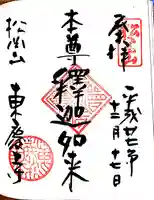 奉拝
平成廿七年
十二月十七日
本尊釋迦如来
松岡山
東慶寺